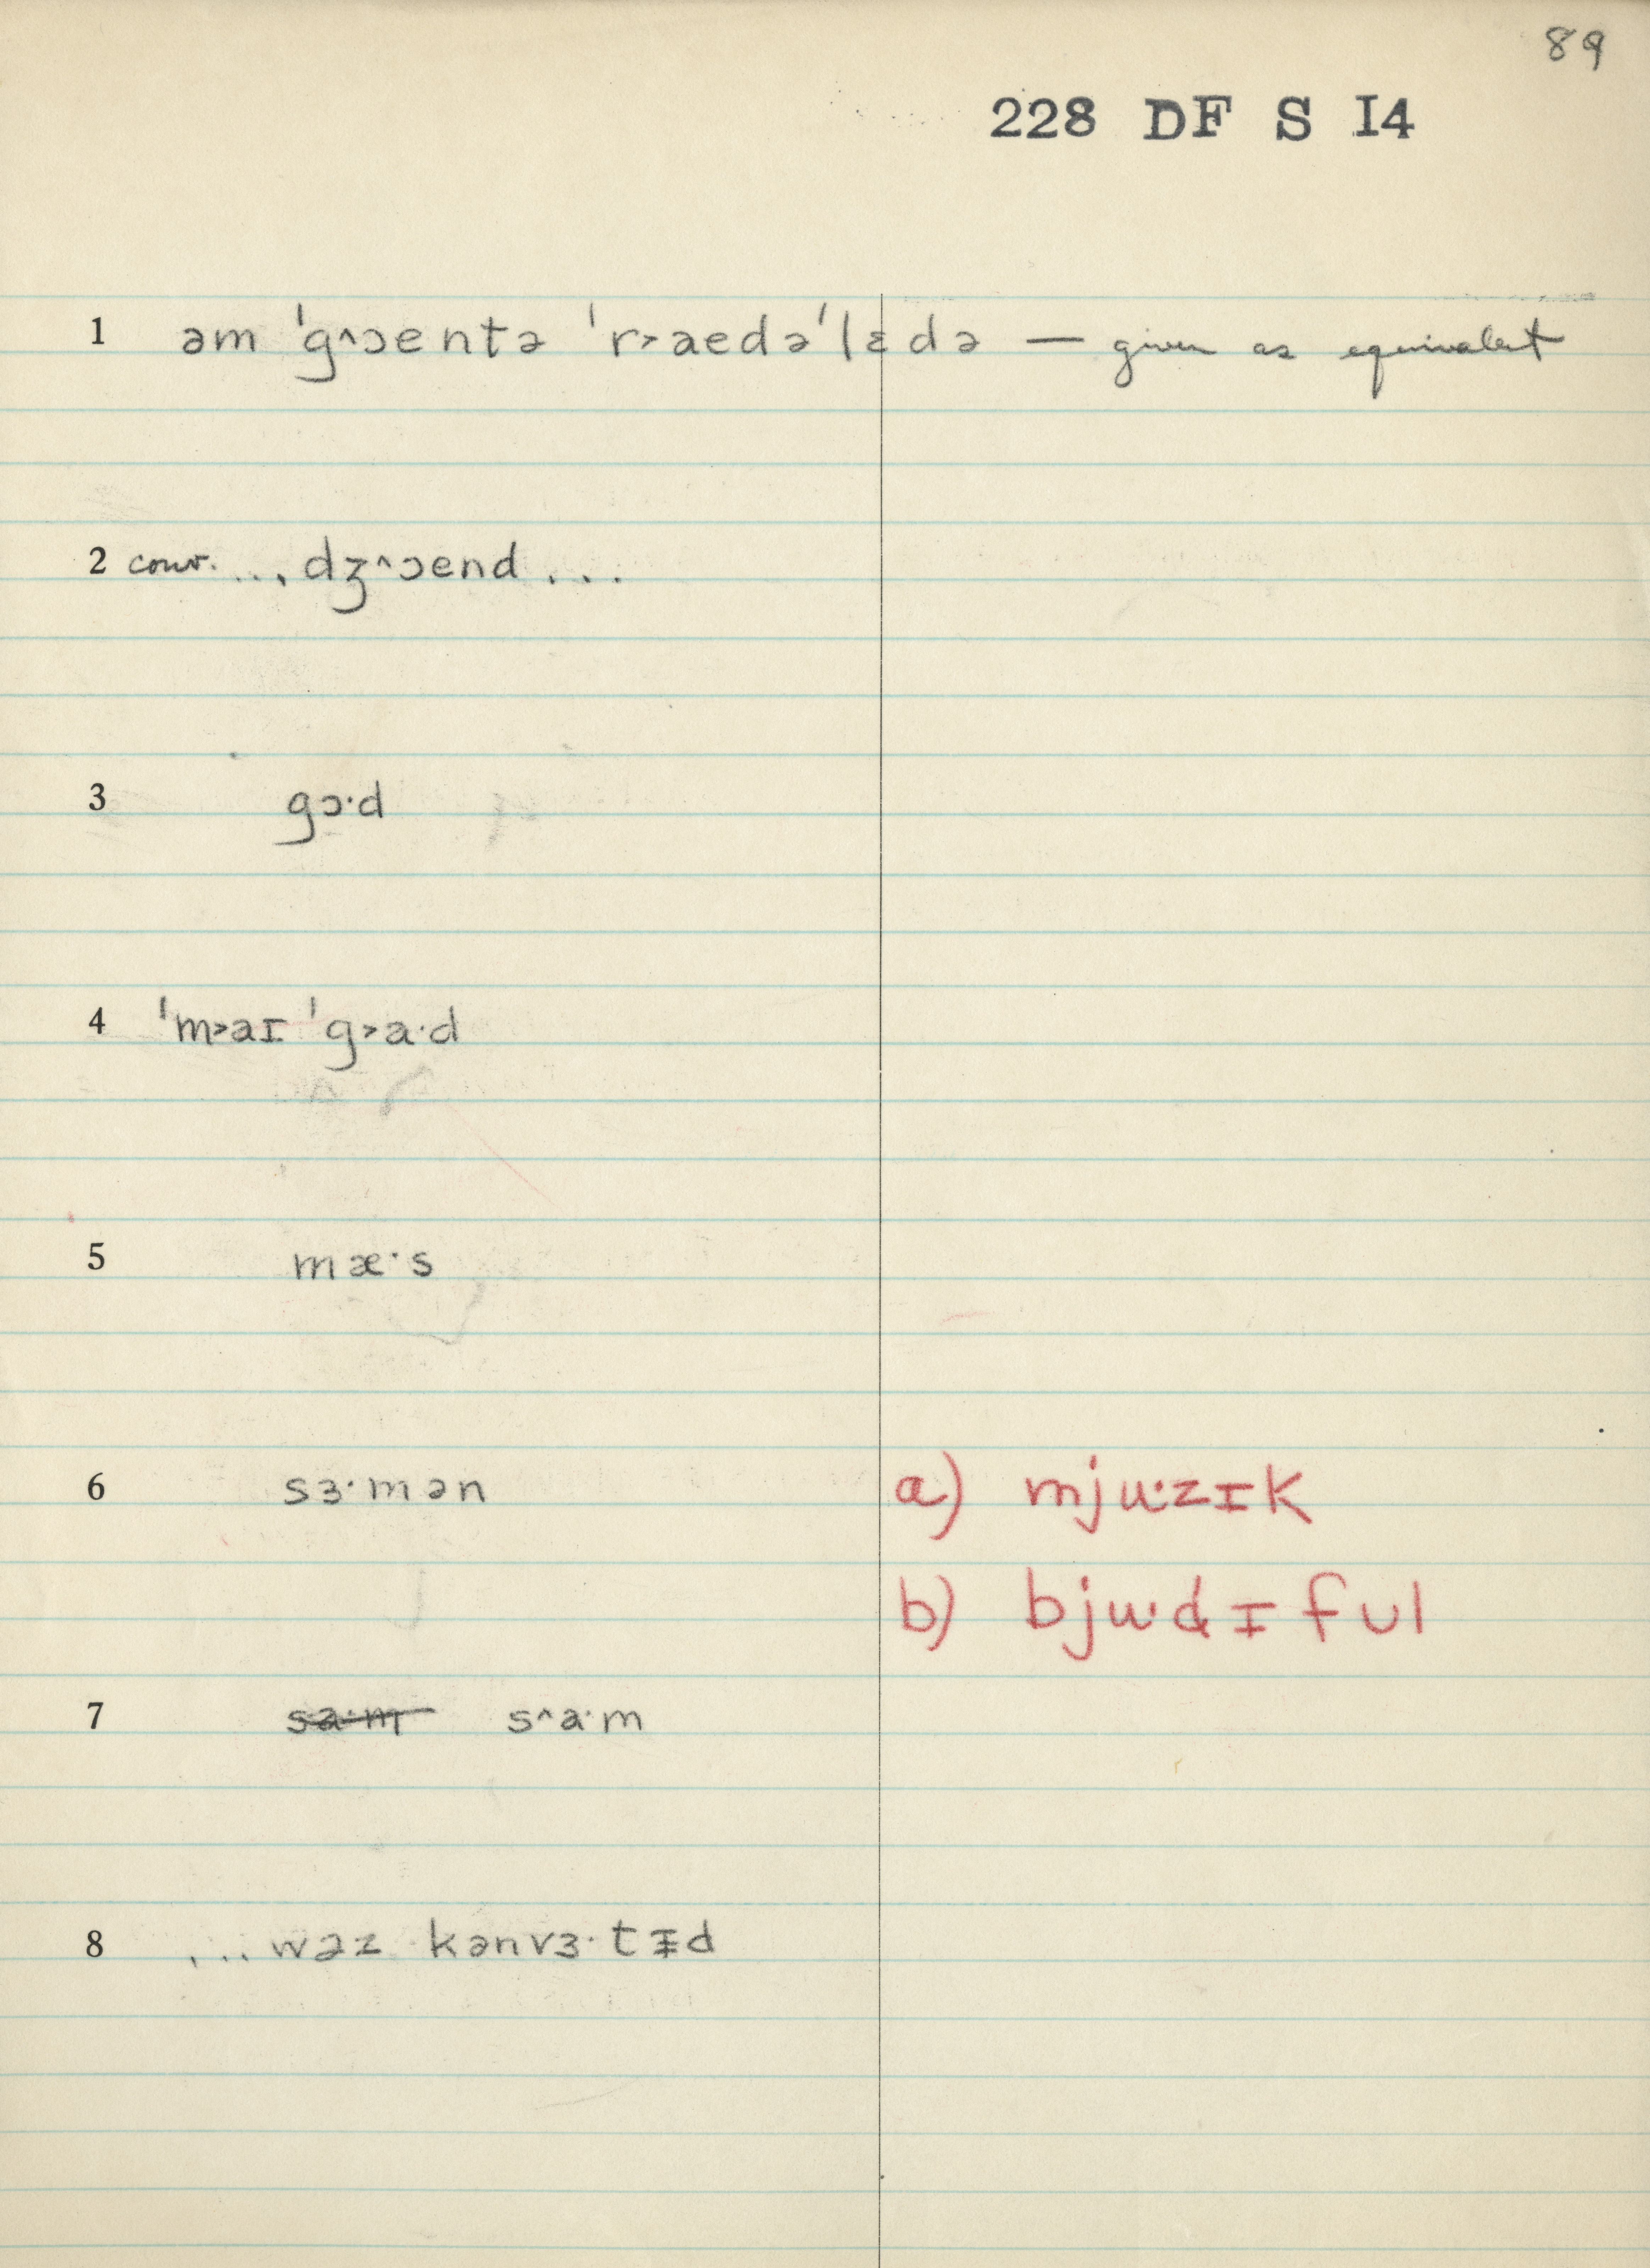 89
228 DF S I4
1 əm ˈg^ɔentə ˈr>aedəˈlɛdə — given as equivalent
2 conv. ... dʒ^ɔend ...
3 gɔ·d
4 ˈm>aɪ ˈg>a·d
5 mæ·s
6 sɜ·mən a) mju·zɪk
b) bju·d̬ɪful
7 sa·m s^a·m
8 ... wəz kənvɜ·tɪ̵d